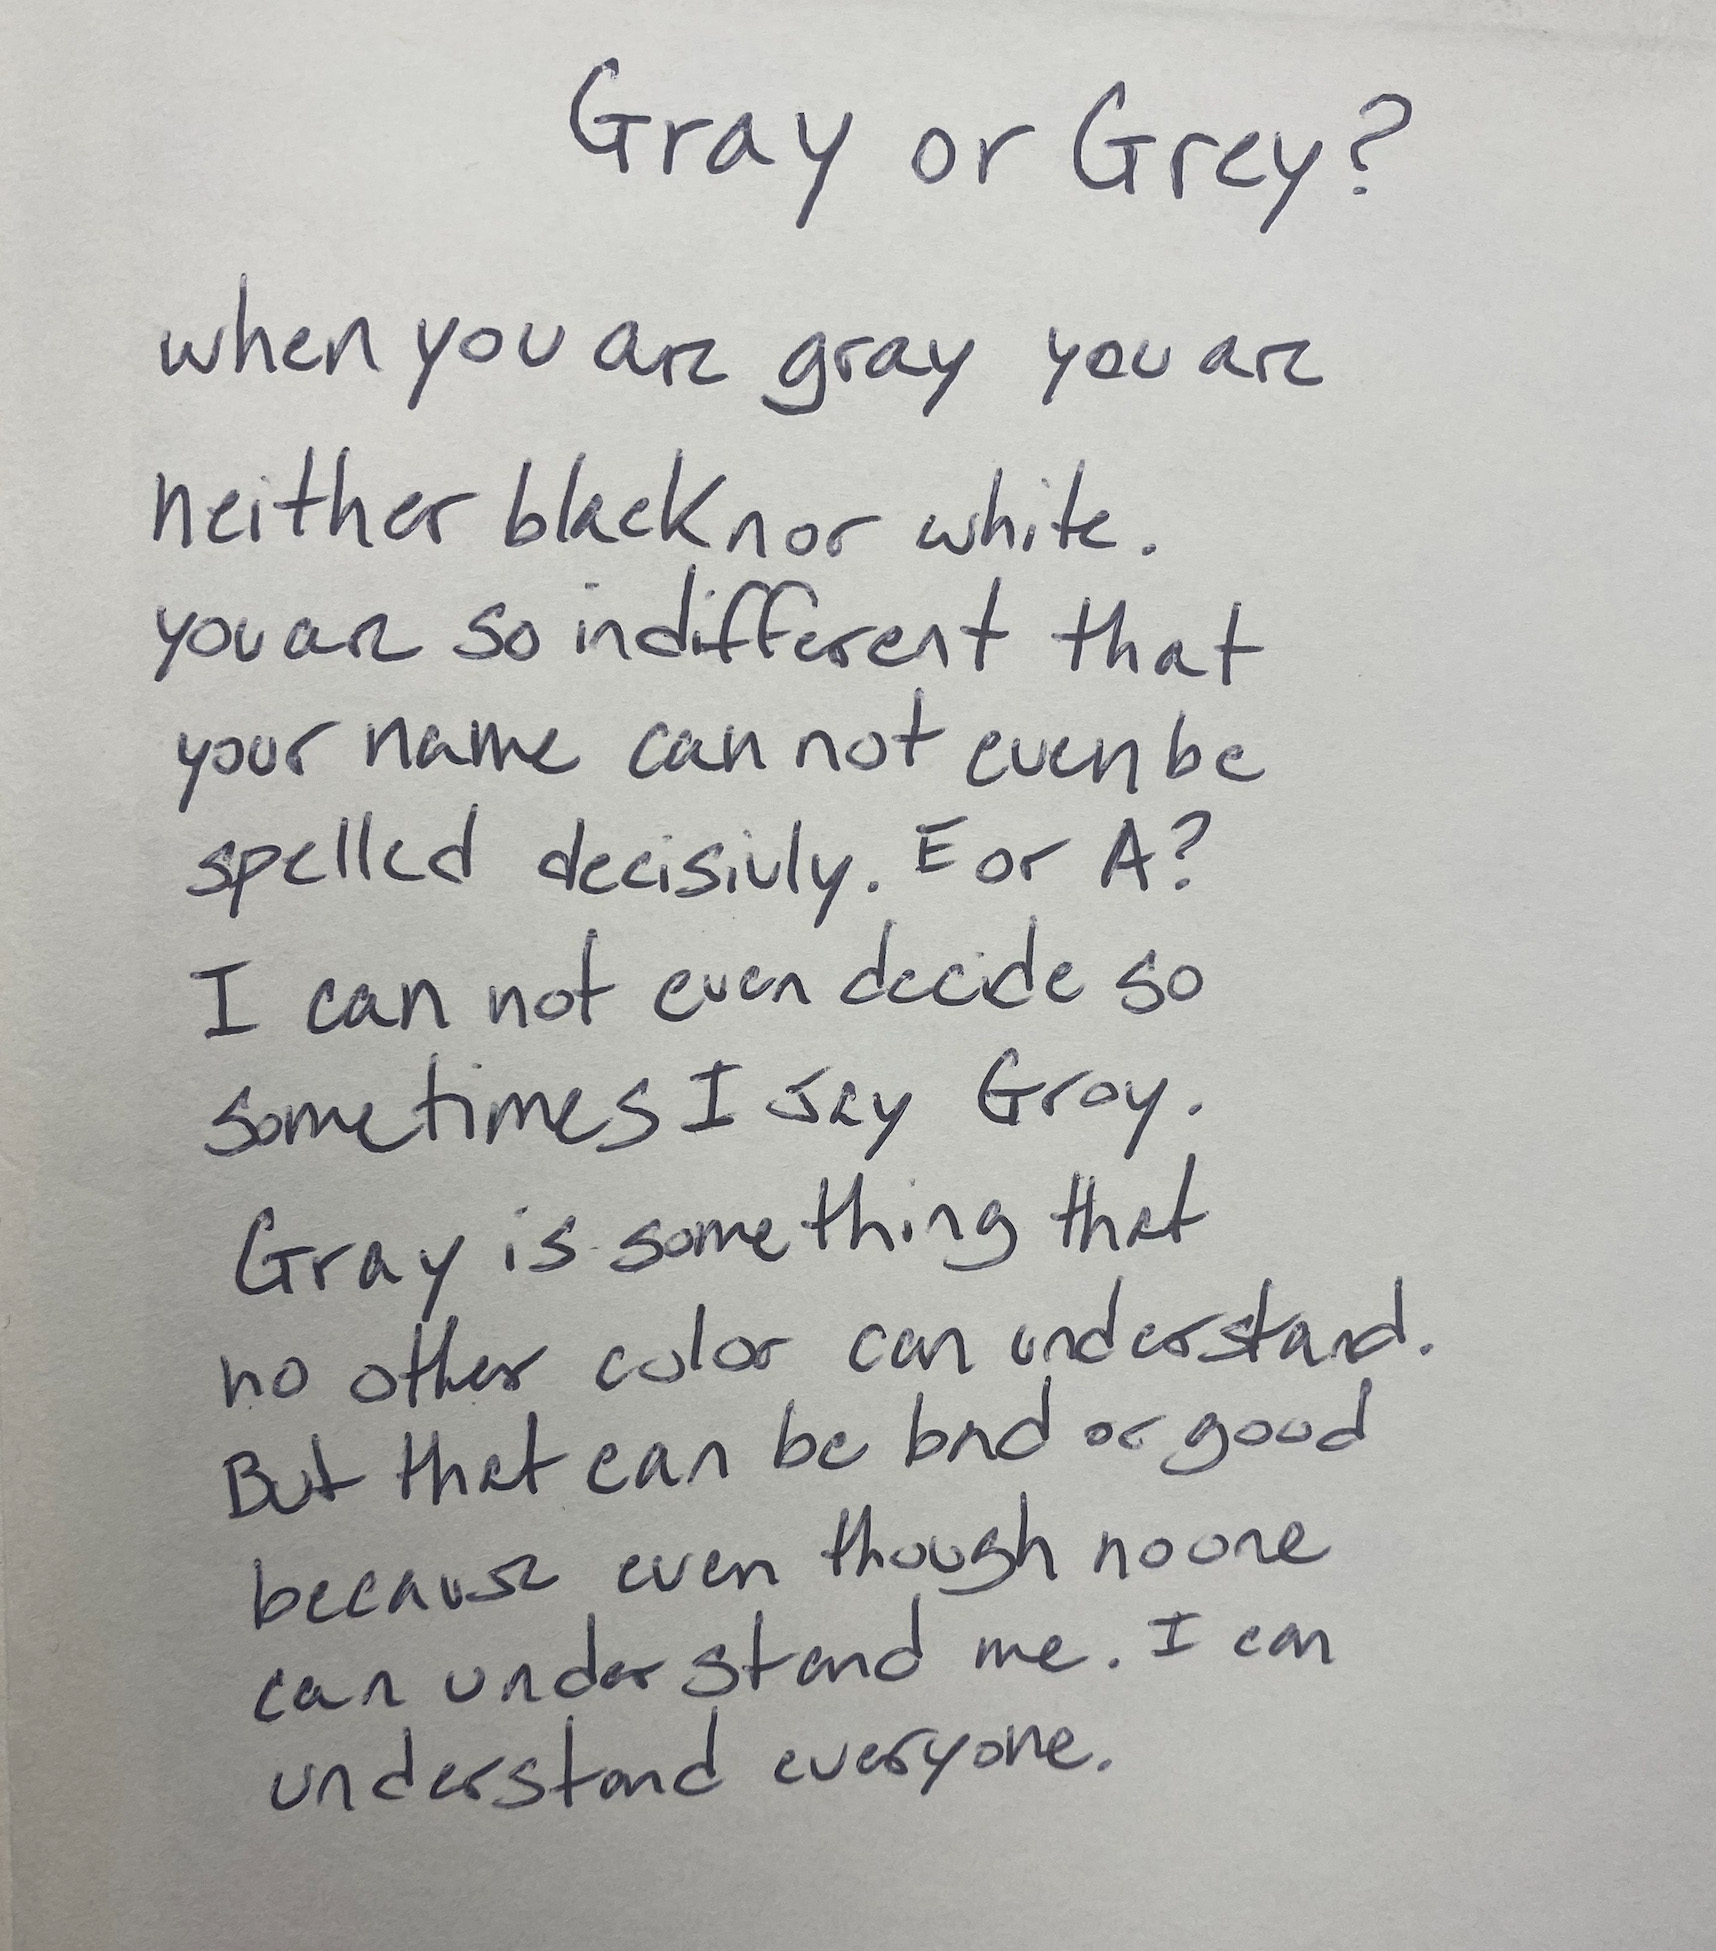 Gray or Grey?
when you are gray you are
neither black nor white.
you are so indifferent that
your name can not even be
spelled decisivly. E or A?
I can not even decide so
sometimes I say Groy.
Gray is something that
no other color can understand.
But that can be bad or good
because even though no one
can understand me. I can
understand everyone.